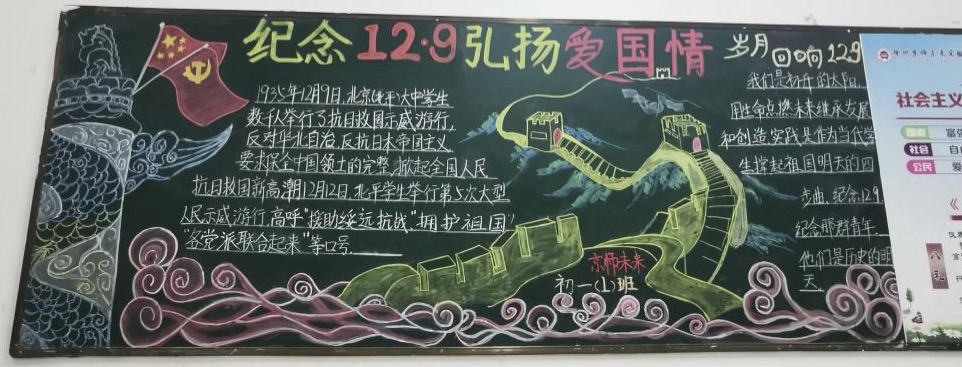 纪念12·9弘扬爱国情
1935年12月9日,北京(北平)大中学生
数千人举行了抗日救国示威游行,
反对华北自治,反抗日本帝国主义
要求保全中国领土的完整,掀起全国人民
抗日救国新高潮12月12日,北平学生举行第5次大型
人民示威游行,高呼"援助绥远抗战""拥护祖国!
"各党派联合起来"等口号
岁月回响129
我们是初升的太阳
用生命点燃未来继承发展
和创造实践是作为当代学
生撑起祖国明天的四
步曲,纪念12.9
纪念那群青年
他们是历史的明
天,
京师未来
初一(1)班
社会主义
国家 富强
社会 自由
公民 爱